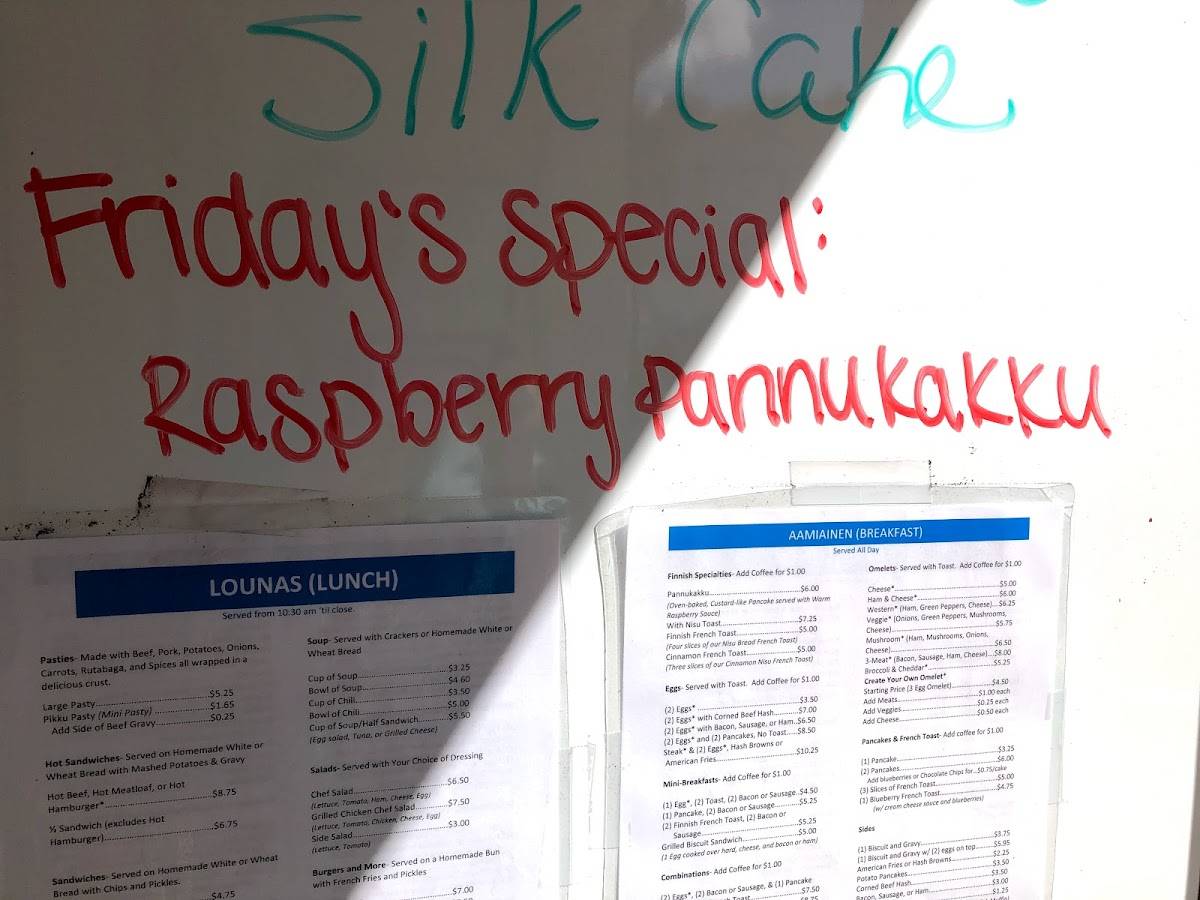 Silk Cake
Friday's special:
Raspberry Pannukakku
LOUNAS (LUNCH)
Served from 10:30 am 'til close.
Pasties- Made with Beef, Pork, Potatoes, Onions,
Carrots, Rutabaga, and Spices all wrapped in a
delicious crust.
Large Pasty....$5.25
Pikku Pasty (Mini Pasty)....$1.65
Add Side of Beef Gravy....$0.25
Hot Sandwiches- Served on Homemade White or
Wheat Bread with Mashed Potatoes & Gravy
Hot Beef, Hot Meatloaf, or Hot
Hamburger*....$8.75
½ Sandwich (excludes Hot
Hamburger)....$6.75
Sandwiches- Served on Homemade White or Wheat
Bread with Chips and Pickles.
$4.75
Soup- Served with Crackers or Homemade White or
Wheat Bread
Cup of Soup....$3.25
Bowl of Soup....$4.60
Cup of Chili....$3.50
Bowl of Chili....$5.00
Cup of Soup/Half Sandwich....$5.50
(Egg salad, Tuna, or Grilled Cheese)
Salads- Served with Your Choice of Dressing
Chef Salad....$6.50
(Lettuce, Tomato, Ham, Cheese, Egg)
Grilled Chicken Chef Salad....$7.50
(Lettuce, Tomato, Chicken, Cheese, Egg)
Side Salad....$3.00
(Lettuce, Tomato)
Burgers and More- Served on a Homemade Bun
with French Fries and Pickles
$7.00
AAMIAINEN (BREAKFAST)
Served All Day
Finnish Specialties- Add Coffee for $1.00
Pannukakku....$6.00
(Oven-baked, Custard-like Pancake served with Warm
Raspberry Sauce)
With Nisu Toast....$7.25
Finnish French Toast....$5.00
(Four slices of our Nisu Bread French Toast)
Cinnamon French Toast....$5.00
(Three slices of our Cinnamon Nisu French Toast)
Eggs- Served with Toast. Add Coffee for $1.00
(2) Eggs*....$3.50
(2) Eggs* with Corned Beef Hash....$7.00
(2) Eggs* with Bacon, Sausage, or Ham..$6.50
(2) Eggs* and (2) Pancakes, No Toast....$8.50
Steak* & (2) Eggs*, Hash Browns or
American Fries....$10.25
Mini-Breakfasts- Add Coffee for $1.00
(1) Egg*, (2) Toast, (2) Bacon or Sausage..$4.50
(1) Pancake, (2) Bacon or Sausage....$5.25
(2) Finnish French Toast, (2) Bacon or
Sausage....$5.25
Grilled Biscuit Sandwich....$5.00
(1 Egg cooked over hard, cheese, and bacon or ham)
Combinations- Add Coffee for $1.00
(2) Eggs*, (2) Bacon or Sausage, & (1) Pancake
$7.50
Omelets- Served with Toast. Add Coffee for $1.00
Cheese*....$5.00
Ham & Cheese*....$6.00
Western* (Ham, Green Peppers, Cheese)....$6.25
Veggie* (Onions, Green Peppers, Mushrooms,
Cheese)....$5.75
Mushroom* (Ham, Mushrooms, Onions,
Cheese)....$6.50
3-Meat* (Bacon, Sausage, Ham, Cheese)....$8.00
Broccoli & Cheddar*....$5.25
Create Your Own Omelet*
Starting Price (3 Egg Omelet)....$4.50
Add Meats....$1.00 each
Add Veggies....$0.25 each
Add Cheese....$0.50 each
Pancakes & French Toast- Add coffee for $1.00
(1) Pancake....$3.25
(2) Pancakes....$6.00
Add blueberries or Chocolate Chips for..$0.75/cake
(3) Slices of French Toast....$5.00
(1) Blueberry French Toast....$4.75
(w/ cream cheese sauce and blueberries)
Sides
(1) Biscuit and Gravy....$3.75
(1) Biscuit and Gravy w/ (2) eggs on top....$5.95
American Fries or Hash Browns....$2.25
Potato Pancakes....$3.50
Corned Beef Hash....$3.00
Bacon, Sausage, or Ham....$1.25